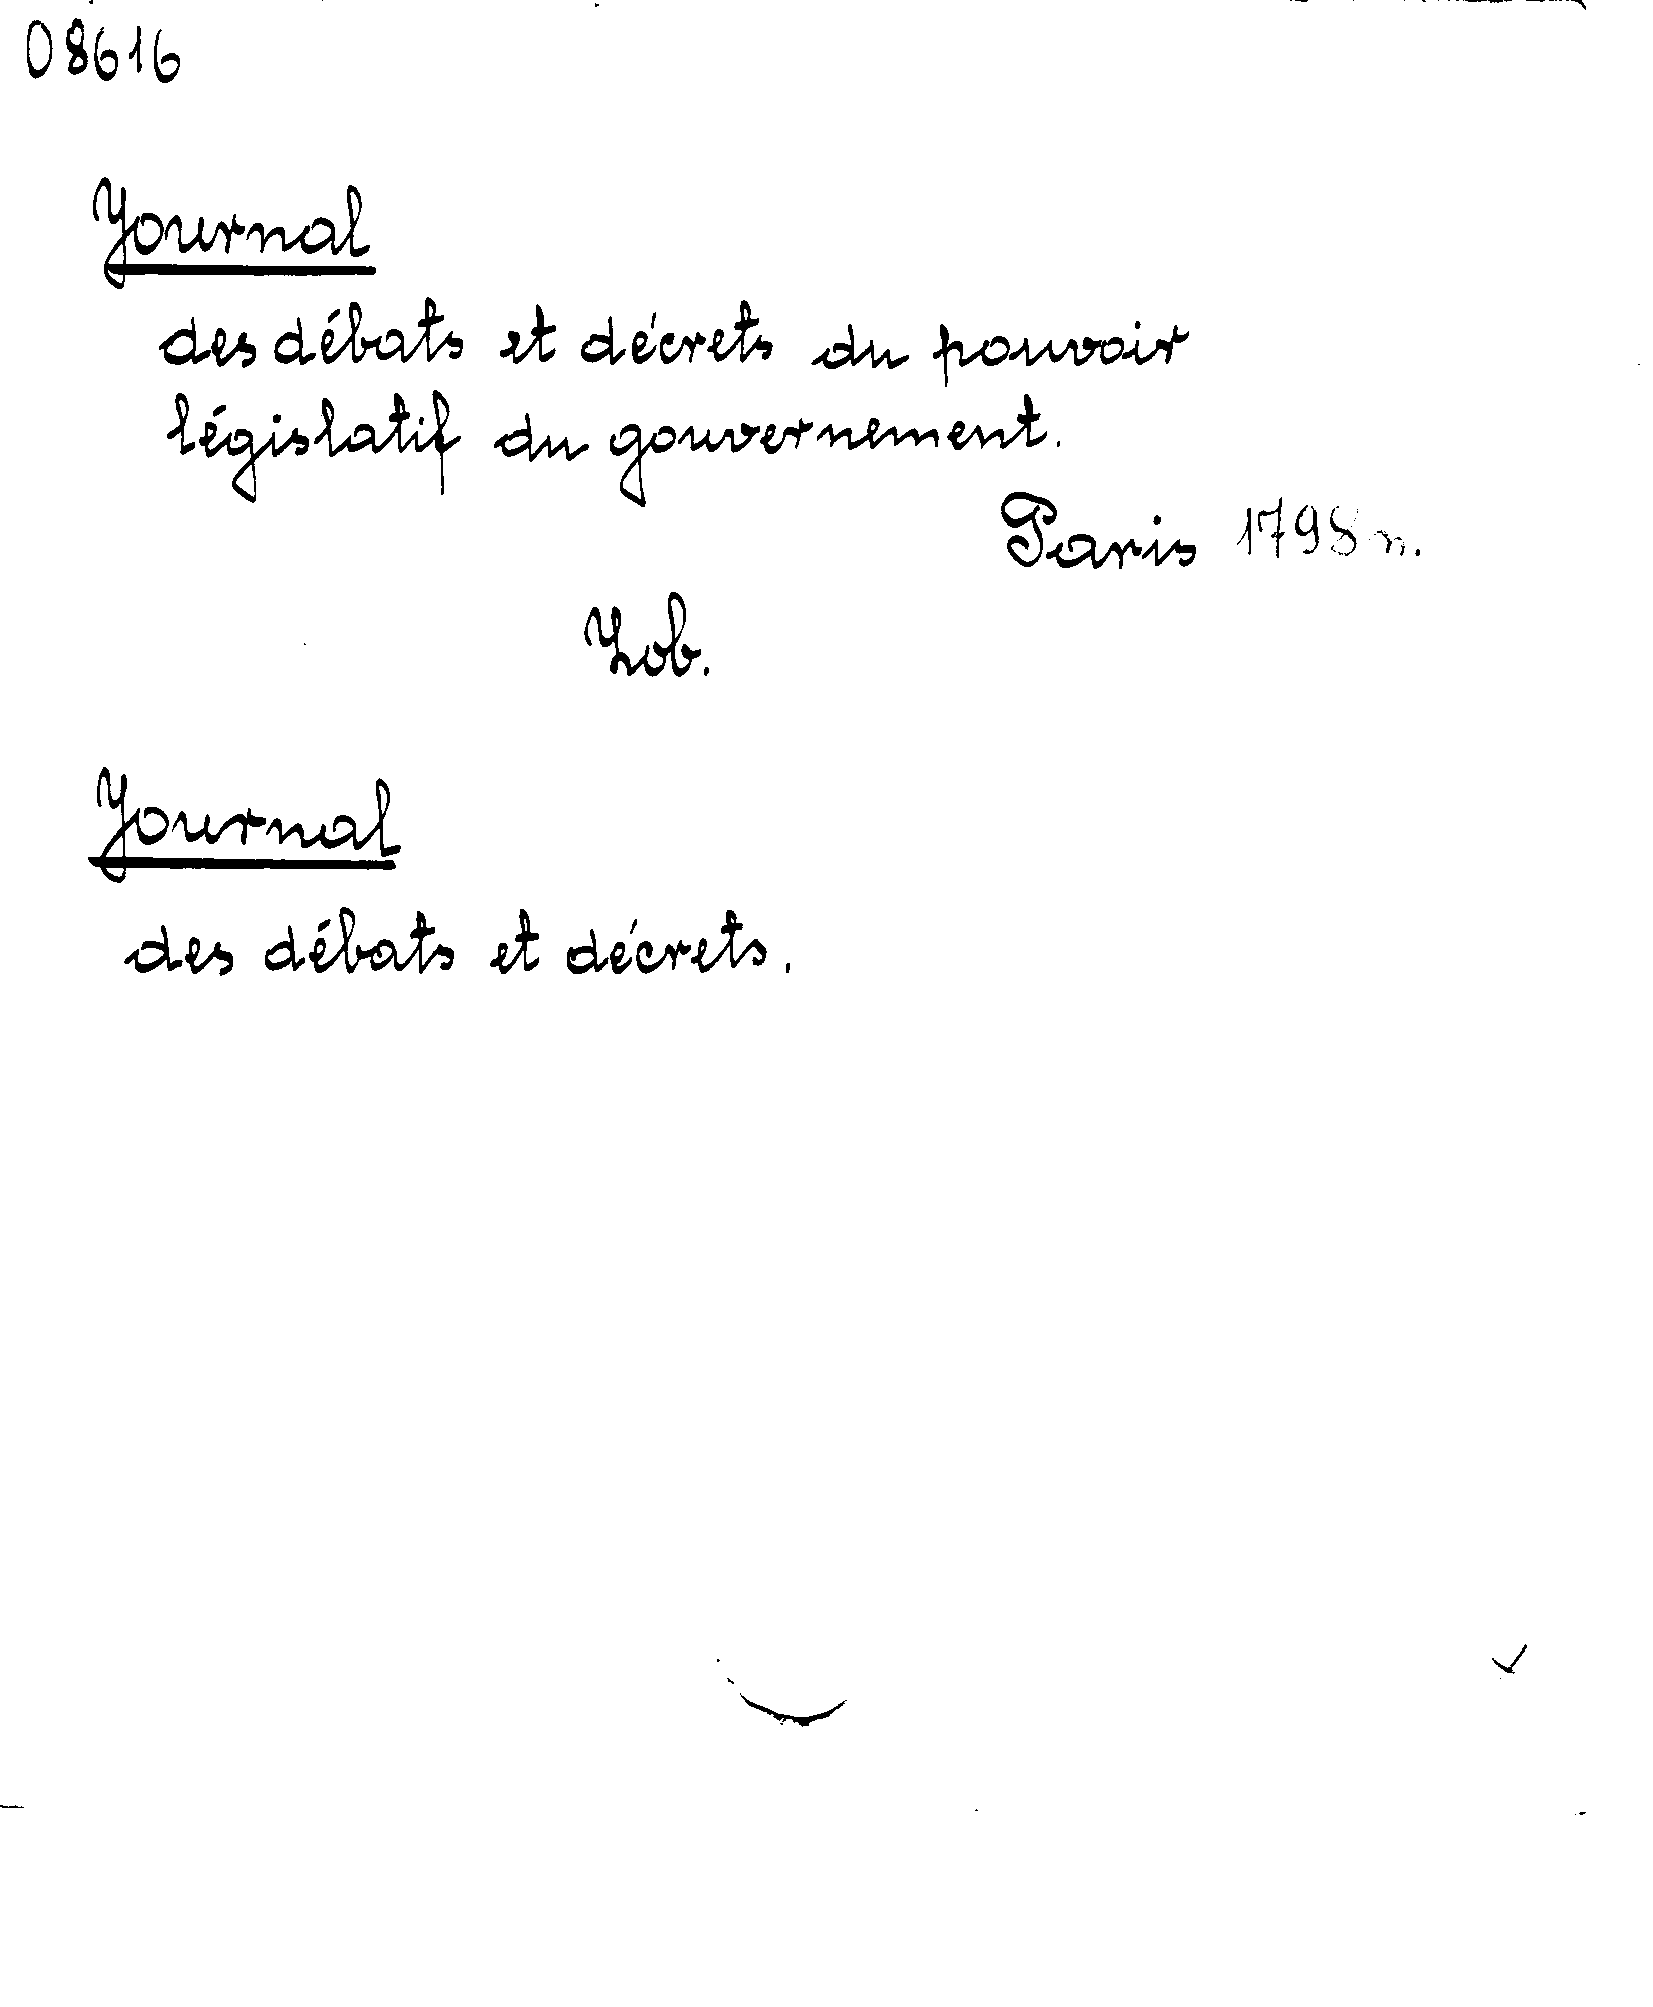 08616
Journal
des débats et décrets du pouvoir
législatif du gouvernement.
Paris 1798 n.
Zob.
Journal
des débats et décrets.